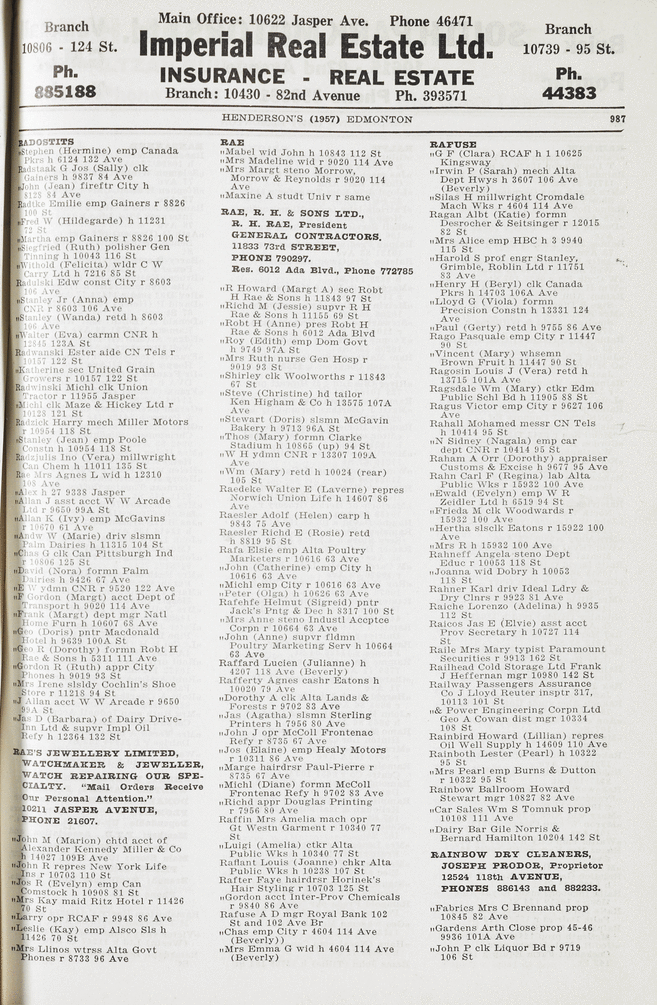 Branch
10806 - 124 St.
Ph.
885188
Main Office: 10622 Jasper Ave. Phone 46471
Imperial Real Estate Ltd.
INSURANCE - REAL ESTATE
Branch: 10430 - 82nd Avenue Ph. 393571
Branch
10739 - 95 St.
Ph.
44383
HENDERSON'S (1957) EDMONTON 987
RADOSTITS
"Stephen (Hermine) emp Canada
Pkrs h 6124 132 Ave
Radstaak G Jos (Sally) clk
Gainers h 9837 84 Ave
"John (Jean) fireftr City h
8128 84 Ave
Radtke Emilie emp Gainers r 8826
100 St
"Fred W (Hildegarde) h 11231
72 St
"Martha emp Gainers r 8826 100 St
"Siegfried (Ruth) polisher Gen
Tinning h 10043 116 St
"Withold (Felicita) wldr C W
Carry Ltd h 7216 85 St
Radulski Edw const City r 8603
106 Ave
"Stanley Jr (Anna) emp
CNR r 8603 106 Ave
"Stanley (Wanda) retd h 8603
106 Ave
"Walter (Eva) carmn CNR h
12845 123A St
Radwanski Ester aide CN Tels r
10157 122 St
"Katherine sec United Grain
Growers r 10157 122 St
Radwinski Michl clk Union
Tractor r 11955 Jasper
"Michl clk Maze & Hickey Ltd r
10128 121 St
Radzick Harry mech Miller Motors
r 10954 118 St
"Stanley (Jean) emp Poole
Constn h 10954 118 St
Radzjulis Ino (Vera) millwright
Can Chem h 11011 135 St
Rae Mrs Agnes L wid h 12310
108 Ave
"Alex h 27 9338 Jasper
"Allan J asst acct W W Arcade
Ltd r 9650 99A St
"Allan K (Ivy) emp McGavins
r 10670 61 Ave
"Andw W (Marie) driv slsmn
Palm Dairies h 11315 104 St
"Chas G clk Can Pittsburgh Ind
r 10806 125 St
"David (Nora) formn Palm
Dairies h 9426 67 Ave
"E W ydmn CNR r 9520 122 Ave
"F Gordon (Margt) acct Dept of
Transport h 9020 114 Ave
"Frank (Margt) dept mgr Natl
Home Furn h 10607 68 Ave
"Geo (Doris) pntr Macdonald
Hotel h 9639 100A St
"Geo R (Dorothy) formn Robt H
Rae & Sons h 5311 111 Ave
"Gordon R (Ruth) appr City
Phones h 9019 93 St
"Mrs Irene slsldy Cochlin's Shoe
Store r 11218 94 St
"J Allan acct W W Arcade r 9650
99A St
"Jas D (Barbara) of Dairy Drive-
Inn Ltd & supvr Impl Oil
Refy h 12364 132 St
RAE'S JEWELLERY LIMITED,
WATCHMAKER & JEWELLER,
WATCH REPAIRING OUR SPE-
CIALTY. "Mail Orders Receive
Our Personal Attention."
10211 JASPER AVENUE,
PHONE 21607.
"John M (Marion) chtd acct of
Alexander Kennedy Miller & Co
h 14027 109B Ave
"John R repres New York Life
Ins r 10703 110 St
"Jos R (Evelyn) emp Can
Comstock h 10908 81 St
"Mrs Kay maid Ritz Hotel r 11426
70 St
"Larry opr RCAF r 9948 86 Ave
"Leslie (Kay) emp Alsco Sls h
11426 70 St
"Mrs Llinos wtrss Alta Govt
Phones r 8733 96 Ave
RAE
"Mabel wid John h 10843 112 St
"Mrs Madeline wid r 9020 114 Ave
"Mrs Margt steno Morrow,
Morrow & Reynolds r 9020 114
Ave
"Maxine A studt Univ r same
RAE, R. H. & SONS LTD.,
R. H. RAE, President
GENERAL CONTRACTORS.
11833 73rd STREET,
PHONE 790297.
Res. 6012 Ada Blvd., Phone 772785
"R Howard (Margt A) sec Robt
H Rae & Sons h 11843 97 St
"Richd M (Jessie) supvr R H
Rae & Sons h 11155 69 St
"Robt H (Anne) pres Robt H
Rae & Sons h 6012 Ada Blvd
"Roy (Edith) emp Dom Govt
h 9749 97A St
"Mrs Ruth nurse Gen Hosp r
9019 93 St
"Shirley clk Woolworths r 11843
67 St
"Steve (Christine) hd tailor
Ken Higham & Co h 13575 107A
Ave
"Stewart (Doris) slsmn McGavin
Bakery h 9713 96A St
"Thos (Mary) formn Clarke
Stadium h 10865 (up) 94 St
"W H ydmn CNR r 13307 109A
Ave
"Wm (Mary) retd h 10024 (rear)
105 St
Raedeke Walter E (Laverne) repres
Norwich Union Life h 14607 86
Ave
Raesler Adolf (Helen) carp h
9843 75 Ave
Raesler Richd E (Rosie) retd
h 8819 95 St
Rafa Elsie emp Alta Poultry
Marketers r 10616 63 Ave
"John (Catherine) emp City h
10616 63 Ave
"Michl emp City r 10616 63 Ave
"Peter (Olga) h 10626 63 Ave
Rafehfe Helmut (Sigreid) pntr
Jack's Pntg & Dec h 8317 100 St
"Mrs Anne steno Industl Accptce
Corpn r 10664 63 Ave
"John (Anne) supvr fldmn
Poultry Marketing Serv h 10664
63 Ave
Raffard Lucien (Julianne) h
4207 118 Ave (Beverly)
Rafferty Agnes cashr Eatons h
10020 79 Ave
"Dorothy A clk Alta Lands &
Forests r 9702 83 Ave
"Jas (Agatha) slsmn Sterling
Printers h 7956 80 Ave
"John J opr McColl Frontenac
Refy r 8735 67 Ave
"Jos (Elaine) emp Healy Motors
r 10311 86 Ave
"Marge hairdrsr Paul-Pierre r
8735 67 Ave
"Michl (Diane) formn McColl
Frontenac Refy h 9702 83 Ave
"Richd appr Douglas Printing
r 7956 80 Ave
Raffin Mrs Amelia mach opr
Gt Westn Garment r 10340 77
St
"Luigi (Amelia) ctkr Alta
Public Wks h 10340 77 St
Raflunt Louis (Joanne) chkr Alta
Public Wks h 10238 107 St
Rafter Faye hairdrsr Horinek's
Hair Styling r 10703 125 St
"Gordon acct Inter-Prov Chemicals
r 9840 86 Ave
Rafuse A D mgr Royal Bank 102
St and 102 Ave Br
"Chas emp City r 4604 114 Ave
(Beverly))
"Mrs Emma G wid h 4604 114 Ave
(Beverly)
RAFUSE
"G F (Clara) RCAF h 1 10625
Kingsway
"Irwin P (Sarah) mech Alta
Dept Hwys h 3607 106 Ave
(Beverly)
"Silas H millwright Cromdale
Mach Wks r 4604 114 Ave
Ragan Albt (Katie) formn
Desrocher & Seitsinger r 12015
82 St
"Mrs Alice emp HBC h 3 9940
115 St
"Harold S prof engr Stanley,
Grimble, Roblin Ltd r 11751
83 Ave
"Henry H (Beryl) clk Canada
Pkrs h 14703 106A Ave
"Lloyd G (Viola) formn
Precision Constn h 13331 124
Ave
"Paul (Gerty) retd h 9755 86 Ave
Rago Pasquale emp City r 11447
90 St
"Vincent (Mary) whsemn
Brown Fruit h 11447 90 St
Ragosin Louis J (Vera) retd h
13715 101A Ave
Ragsdale Wm (Mary) ctkr Edm
Public Schl Bd h 11905 88 St
Ragus Victor emp City r 9627 106
Ave
Rahall Mohamed messr CN Tels
h 10414 95 St
"N Sidney (Nagala) emp car
dept CNR r 10414 95 St
Raham A Orr (Dorothy) appraiser
Customs & Excise h 9677 95 Ave
Rahn Carl F (Regina) lab Alta
Public Wks r 15932 100 Ave
"Ewald (Evelyn) emp W R
Zeidler Ltd h 6519 94 St
"Frieda M clk Woodwards r
15932 100 Ave
"Hertha slsclk Eatons r 15922 100
Ave
"Mrs R h 15932 100 Ave
Rahneff Angela steno Dept
Educ r 10053 118 St
"Joanna wid Dobry h 10053
118 St
Rahner Karl driv Ideal Ldry &
Dry Clnrs r 9923 81 Ave
Raiche Lorenzo (Adelina) h 9935
112 St
Raicos Jas E (Elvie) asst acct
Prov Secretary h 10727 114
St
Raile Mrs Mary typist Paramount
Securities r 9913 162 St
Railhead Cold Storage Ltd Frank
J Heffernan mgr 10980 142 St
Railway Passengers Assurance
Co J Lloyd Reuter insptr 317,
10113 101 St
"& Power Engineering Corpn Ltd
Geo A Cowan dist mgr 10334
108 St
Rainbird Howard (Lillian) repres
Oil Well Supply h 14609 110 Ave
Rainboth Lester (Pearl) h 10322
95 St
"Mrs Pearl emp Burns & Dutton
r 10322 95 St
Rainbow Ballroom Howard
Stewart mgr 10827 82 Ave
"Car Sales Wm S Tomnuk prop
10108 111 Ave
"Dairy Bar Gile Norris &
Bernard Hamilton 10204 142 St
RAINBOW DRY CLEANERS,
JOSEPH PRODOR, Proprietor
12524 118th AVENUE,
PHONES 886143 and 882233.
"Fabrics Mrs C Brennand prop
10845 82 Ave
"Gardens Arth Close prop 45-46
9936 101A Ave
"John P clk Liquor Bd r 9719
106 St